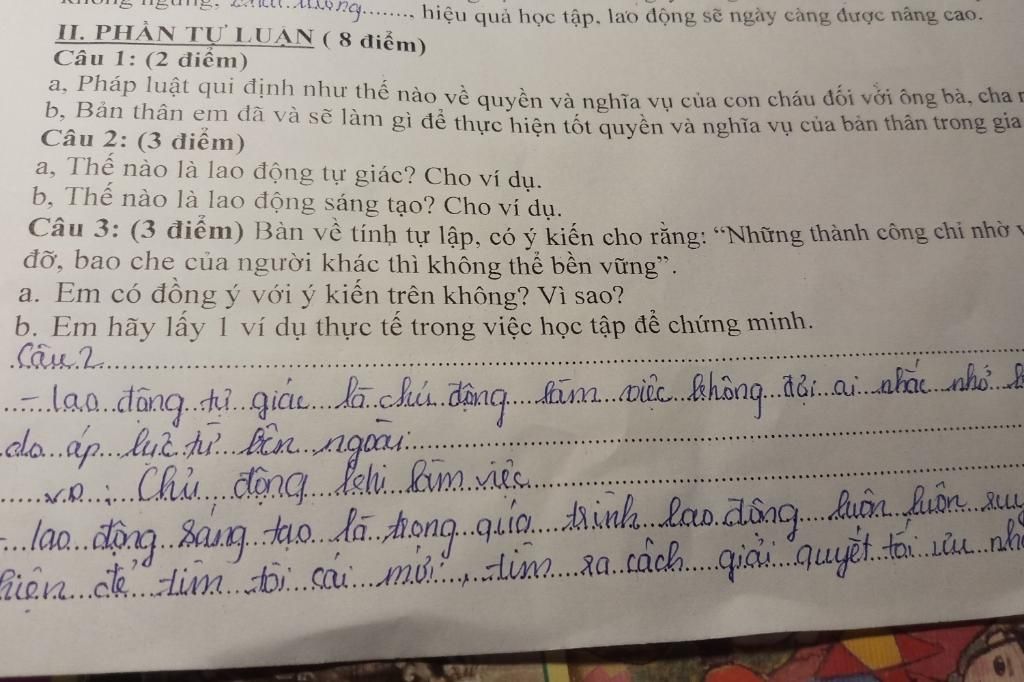 hiệu quả học tập, lao động sẽ ngày càng được nâng cao.
II. PHẦN TỰ LUẬN ( 8 điểm)
Câu 1: (2 điểm)
a, Pháp luật qui định như thế nào về quyền và nghĩa vụ của con cháu đối với ông bà, cha
b, Bản thân em đã và sẽ làm gì để thực hiện tốt quyền và nghĩa vụ của bản thân trong gia
Câu 2: (3 điểm)
a, Thế nào là lao động tự giác? Cho ví dụ.
b, Thế nào là lao động sáng tạo? Cho ví dụ.
Câu 3: (3 điểm) Bàn về tính tự lập, có ý kiến cho rằng: “Những thành công chỉ nhờ
đỡ, bao che của người khác thì không thể bền vững”.
a. Em có đồng ý với ý kiến trên không? Vì sao?
b. Em hãy lấy 1 ví dụ thực tế trong việc học tập để chứng minh.
Câu 2
- lao động tự giác là chủ động làm việc không đợi ai nhắc nhở
do áp lực từ bên ngoài
VD : Chủ động khi làm việc
- lao động sáng tạo là trong quá trình lao động luôn luôn suy
hiện để tìm tòi cái mới, tìm ra cách giải quyết tối ưu